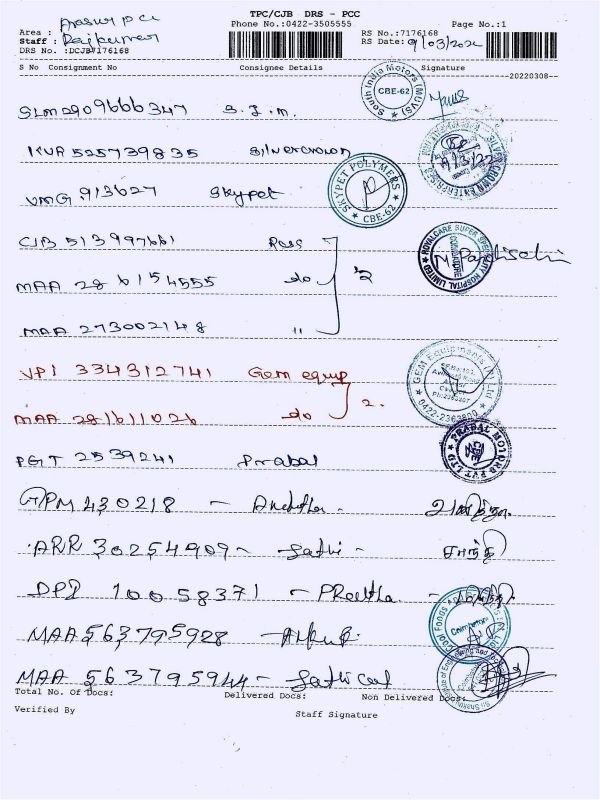 TPC/CJB DRS - PCC
Area : Arasur PCC Phone No.:0422-3505555 Page No.:1
Staff : Rajkumar RS No.:7176168
DRS No. :DCJB7176168 RS Date: 9/03/2022
S No Consignment No Consignee Details Signature
20220308--
SLM2909666347 S.I.M.
SOUTH INDIA MOTORS (MUVS) CBE-62
KVR 525739835 Silvercrown
SILVER CROWN ENTERPRISES 9/3/22
VMG 913627 Skypet
SKYPET POLYMERS CBE-62
CJB 513997661 2
ROYALCARE SUPER SPECIALITY HOSPITAL LIMITED COIMBATORE
MAA 28 6154555 do
MAA 273002148 "
VPI 334312741 Gem equip 2.
GEM Equipments (P) Ltd 0422-2363800
MAA 281611026 do
PGT 2539241 Prabal
PRABAL MOTORS PVT LTD
GPM 430218 -
ARR 30254909 - Sathi - சாந்தி
DPI 10058371 - PReetha -
MAA 563795928 -
Coimbatore
MAA 563795944 -
Total No. of Docs: Delivered Docs: Non Delivered Docs:
Verified By Staff Signature